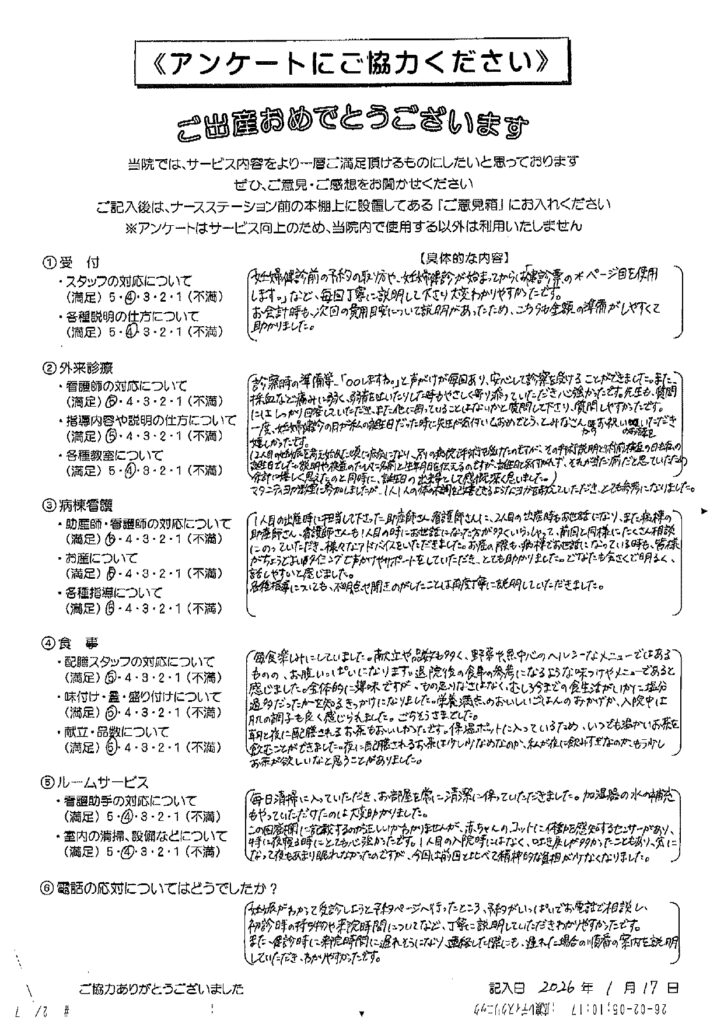 《アンケートにご協力ください》
ご出産おめでとうございます
当院では、サービス内容をより一層ご満足頂けるものにしたいと思っております
ぜひ、ご意見・ご感想をお聞かせください
ご記入後は、ナースステーション前の本棚上に設置してある「ご意見箱」にお入れください
※アンケートはサービス向上のため、当院内で使用する以外は利用いたしません
①受 付
【具体的な内容】
・スタッフの対応について
(満足) 5・4・3・2・1 (不満)
・各種説明の仕方について
(満足) 5・4・3・2・1 (不満)
妊婦健診前の予約の取り方や、妊婦健診が始まってからは「健診票の*ページ目を使用
します。」など、毎回丁寧に説明して下さり大変わかりやすかったです。
お会計時も、次回の費用目安について説明があったため、こちらも金額の準備がしやすくて
助かりました。
②外来診療
・看護師の対応について
(満足) 5・4・3・2・1 (不満)
・指導内容や説明の仕方について
(満足) 5・4・3・2・1 (不満)
・各種教室について
(満足) 5・4・3・2・1 (不満)
診察時の準備等、「〇〇しますね。」と声がけが毎回あり、安心して診察を受けることができました。また、
採血など痛みに弱く、弱音を吐いたりした時もやさしく寄り添っていただき心強かったです。先生も、質問
にはしっかり回答していただき、また他に困っていることはないかと質問して下さり、質問しやすかったです。
一度、妊婦健診の日が私の誕生日だった時に先生が気付いておめでとう、とみなさんからお祝いいただき
嬉しかったです。
マタニティヨガ
③病棟看護
・助産師・看護師の対応について
(満足) 5・4・3・2・1 (不満)
・お産について
(満足) 5・4・3・2・1 (不満)
・各種指導について
(満足) 5・4・3・2・1 (不満)
1人目の出産時に担当して下さった助産師さん、看護師さんに、2人目の出産時もお世話になり、また病棟の
助産師さん、看護師さんも1人目の時にお世話になった方が多くいらっしゃって、前回と同様にたくさん相談
にのっていただき、様々なアドバイスをいただきました。お産の際も、病棟でお世話になっている時も、皆様
がちょうどよいタイミングで声かけやサポートをしていただき、とても助かりました。どなたも気さくで明るく、
話しやすいと感じました。
各種指導についても、不明点や聞きのがしたことは再度丁寧に説明していただきました。
④食 事
・配膳スタッフの対応について
(満足) 5・4・3・2・1 (不満)
・味付け・量・盛り付けについて
(満足) 5・4・3・2・1 (不満)
・献立・品数について
(満足) 5・4・3・2・1 (不満)
毎食楽しみにしていました。献立や品数も多く、野菜や魚中心のヘルシーなメニューではある
ものの、お腹いっぱいになります。退院後の食事の参考になるような味つけやメニューであると
感じました。全体的に薄味ですが、もの足りなさはなく、むしろ今までの食生活がいかに塩分
過多だったかを知るきっかけになりました。栄養満点のおいしいごはんのおかげか、入院中は
肌の調子も良く感じられました。ごちそうさまでした。
朝と夜に配膳されるお茶もおいしかったです。保温ポットに入っているため、いつでも温かいお茶を
飲むことができました。夜に配膳されるお茶は少し少なめなのか、私が夜に飲みすぎなのか、もう少し
お茶が欲しいなと思うことがありました。
⑤ルームサービス
・看護助手の対応について
(満足) 5・4・3・2・1 (不満)
・室内の清掃、設備などについて
(満足) 5・4・3・2・1 (不満)
毎日清掃に入っていただき、お部屋を常に清潔に保っていただきました。加湿器の水の補充
もやっていただけたのは大変助かりました。
この回答欄に記載するのが正しいかわかりませんが、赤ちゃんのコットに体動を感知するセンサーがあり、
特に夜寝る時にとても心強かったです。1人目の入院時にはなく、吐き戻しが多かったこともあり、気に
なって夜もあまり眠れなかったのですが、今回は前回とくらべて精神的な負担が少なくなりました。
⑥電話の応対についてはどうでしたか?
妊娠がわかって受診しようと予約ページへ行ったところ、予約がいっぱいでお電話で相談し、
初診時の持ち物や来院時間についてなど、丁寧に説明していただきわかりやすかったです。
また、健診時に来院時間に遅れそうになり、連絡した際にも、遅れた場合の順番の案内を説明
していただき、わかりやすかったです。
ご協力ありがとうございました
記入日 2026 年 1 月 17 日
26-02-05;10:17
# 2/ 7